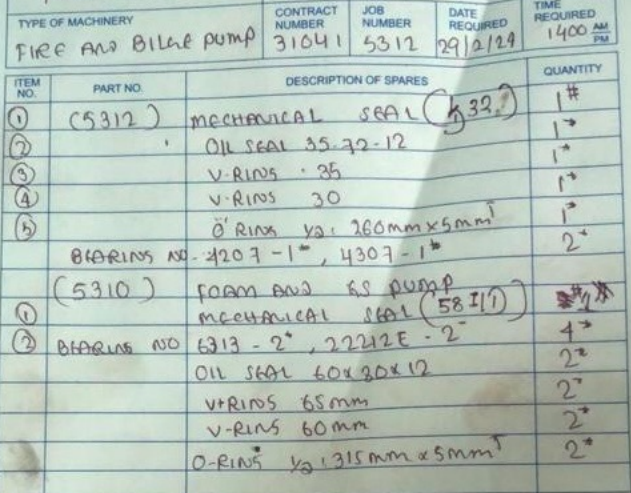 TYPE OF MACHINERY CONTRACT NUMBER JOB NUMBER DATE REQUIRED TIME REQUIRED
FIRE AND BILGE PUMP 31041 5312 29/2/24 1400 AM PM
ITEM NO. PART NO. DESCRIPTION OF SPARES QUANTITY
① (5312) MECHANICAL SEAL (532) 1#
② OIL SEAL 35-72-12 1#
③ V-RING 35 1#
④ V-RING 30 1#
⑤ O'RING 260mm x 5mm T 1#
BEARING NO - 4207 - 1#, 4307 - 1# 2#
(5310) FOAM AND GS PUMP
① MECHANICAL SEAL
② BEARING NO 6313 - 2#, 22212E - 2# 4#
OIL SEAL 60x80x12 2#
V-RING 65mm 2#
V-RING 60mm 2#
O-RING 315mm x 5mm T 2#